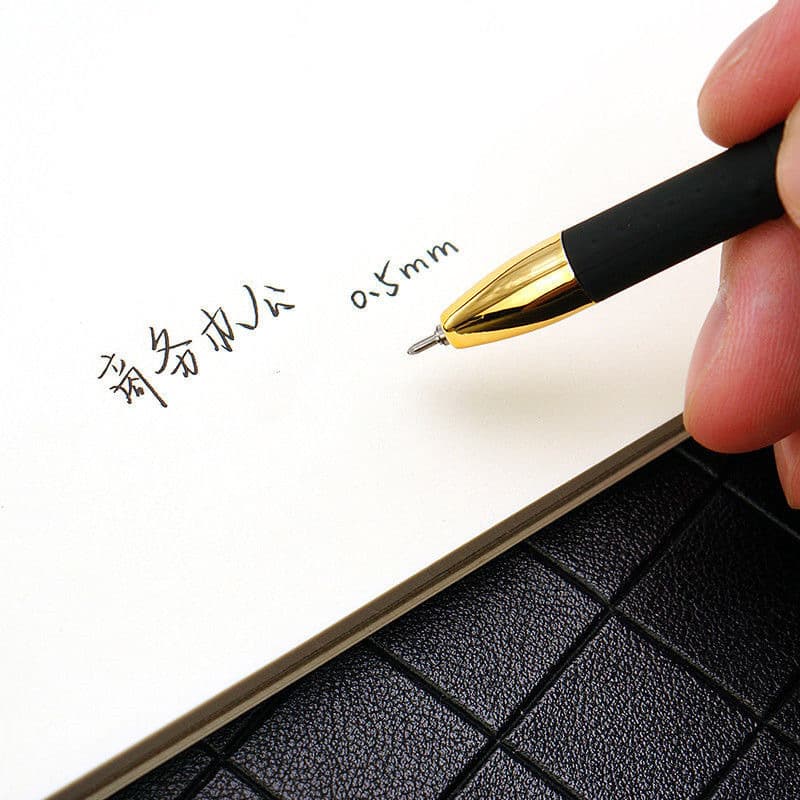 商务办公 0.5mm